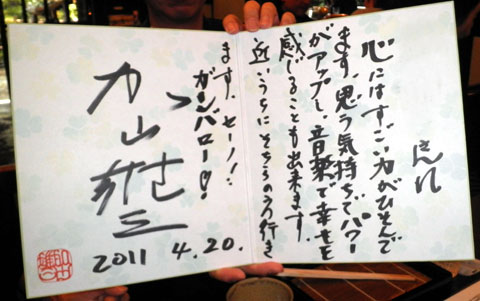 心にはすごい力がひそんで
ます、思う気持ちでパワー
がアップし、音楽で幸せを
感じることも出来ます。
近いうちにそちらの方行き
ます、セーノ!!
ガンバロー!
加山雄三
2011 4.20.